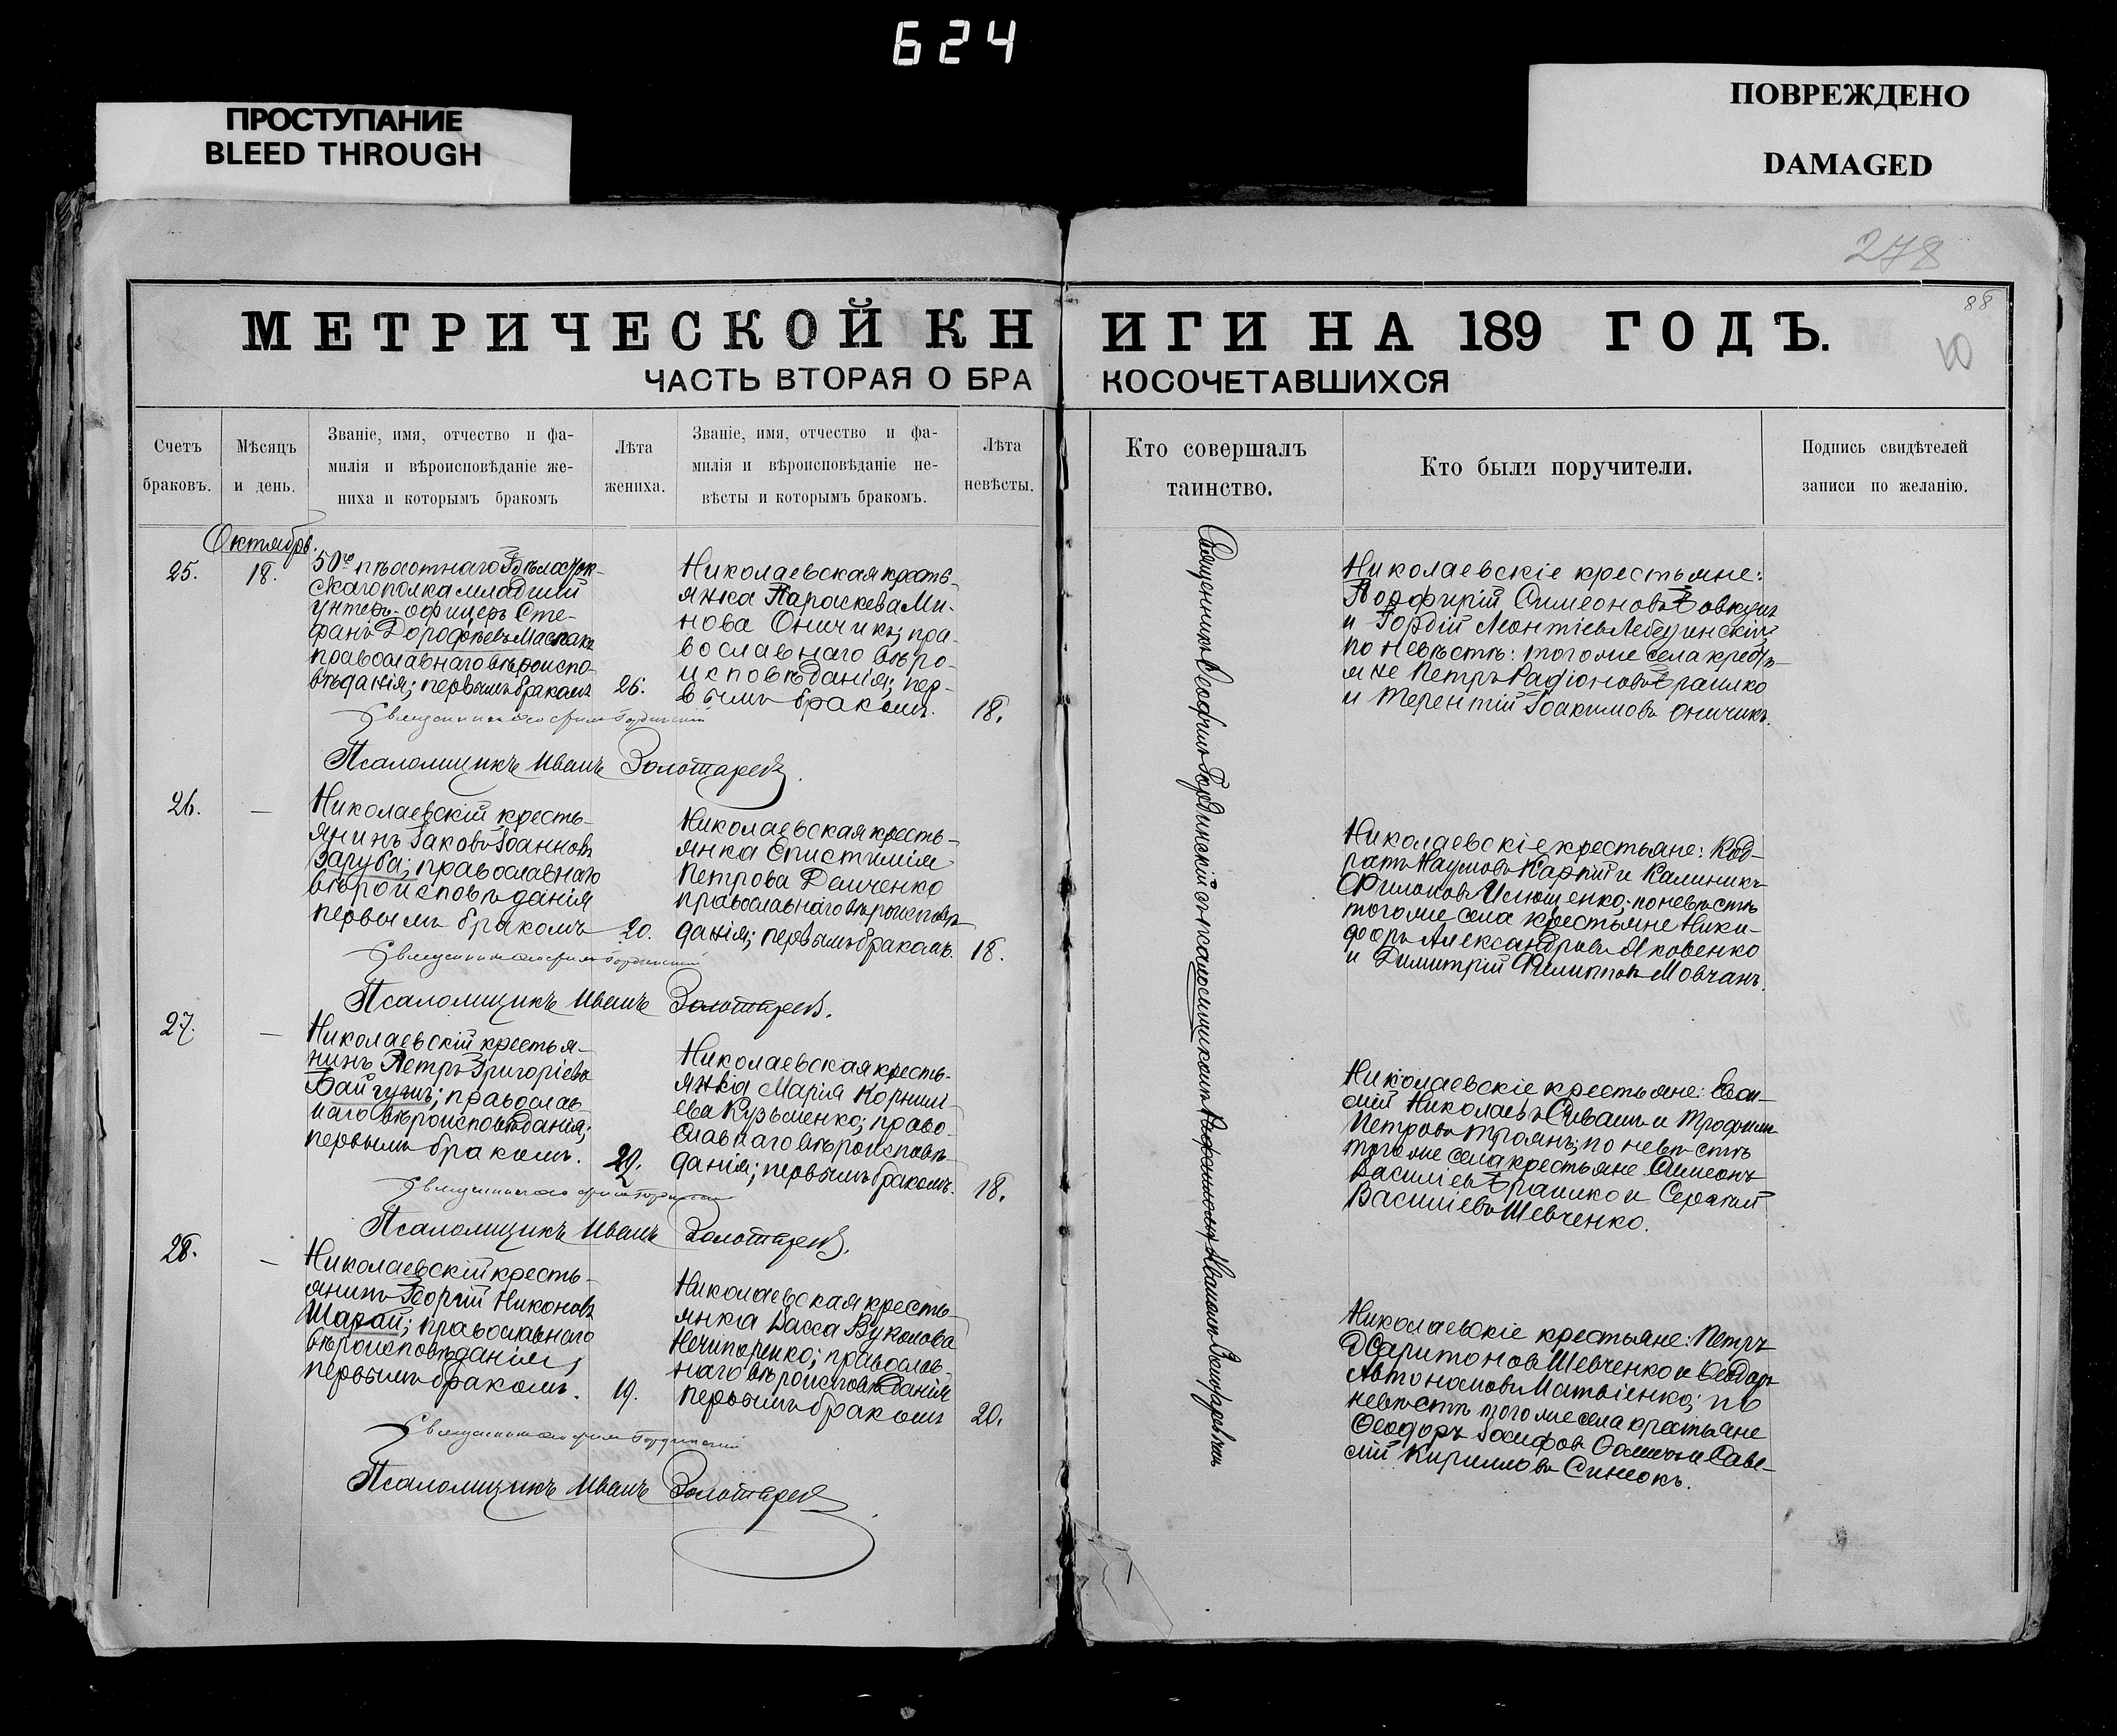 624
ПРОСТУПАНИЕ
BLEED THROUGH
ПОВРЕЖДЕНО
DAMAGED
278
88
МЕТРИЧЕСКОЙ КНИГИ НА 189 ГОДЪ.
ЧАСТЬ ВТОРАЯ О БРАКОСОЧЕТАВШИХСЯ
Счетъ
браковъ.
Мѣсяцъ
и день.
Званіе, имя, отчество и фа-
милія и вѣроисповѣданіе же-
ниха и которымъ бракомъ
Лѣта
жениха.
Званіе, имя, отчество и фа-
милія и вѣроисповѣданіе не-
вѣсты и которымъ бракомъ.
Лѣта
невѣсты.
Кто совершалъ
таинство.
Кто были поручители.
Подпись свидѣтелей
записи по желанію.
Октябрь.
25.
18.
50го пѣхотнаго Бѣлосток-
скаго полка младшій
унтеръ-офицеръ Сте-
фанъ Дорофѣевъ
православнаго вѣроиспо-
вѣданія; первымъ бракомъ
26.
Николаевская кресть-
янка Параскева Ми-
нова Оничикъ; пра-
вославнаго вѣро-
исповѣданія; пер-
вымъ бракомъ.
18.
Николаевскіе крестьяне:
Порфирій Симеоновъ
и Гордій Леонтіевъ Лебединскій
по невѣстѣ: того же села кресть-
яне Петръ Радіоновъ
и Терентій Іоакимовъ Оничикъ.
Псаломщикъ Иванъ Золотаревъ.
26.
—
Николаевскій кресть-
янинъ Іаковъ Іоанновъ
Заруба; православнаго
вѣроисповѣданія
первымъ бракомъ
20.
Николаевская кресть-
янка Епистимія
Петрова Демченко
православнаго вѣроисповѣ-
данія; первымъ бракомъ.
18.
Николаевскіе крестьяне: Код-
ратъ Наумовъ Карпій и Калиникъ
Филиповъ Илющенко; по невѣстѣ
того же села крестьяне Ники-
форъ Александровъ Яковенко
и Димитрій Филиповъ Мовчанъ.
Псаломщикъ Иванъ Золотаревъ.
27.
—
Николаевскій крестья-
нинъ Петръ Григоріевъ
православ-
наго вѣроисповѣданія;
первымъ бракомъ.
29.
Николаевская кресть-
янка Марія Корнилі-
ева Кузьменко; право-
славнаго вѣроисповѣ-
данія; первымъ бракомъ.
18.
Николаевскіе крестьяне:
Николаевъ и Трофимъ
Петровъ Троянъ; по невѣстѣ
того же села крестьяне Симеонъ
Василіевъ и Сергій
Василіевъ Шевченко.
Псаломщикъ Иванъ Золотаревъ.
28.
—
Николаевскій кресть-
янинъ Георгій Никоновъ
православнаго
вѣроисповѣданія;
первымъ бракомъ.
19.
Николаевская кресть-
янка Васса Вуколова
Нечипоренко; православ-
наго вѣроисповѣданія
первымъ бракомъ
20.
Николаевскіе крестьяне: Петръ
Харитоновъ Шевченко и Ѳеодоръ
Автономовъ Матвіенко; по
невѣстѣ того же села крестьяне
Ѳеодоръ Іосифовъ и Саве-
лій Кирилловъ Синюкъ.
Псаломщикъ Иванъ Золотаревъ.
Священникъ Ѳеофилъ Гординскій съ псаломщикомъ Иваномъ Золотаревымъ